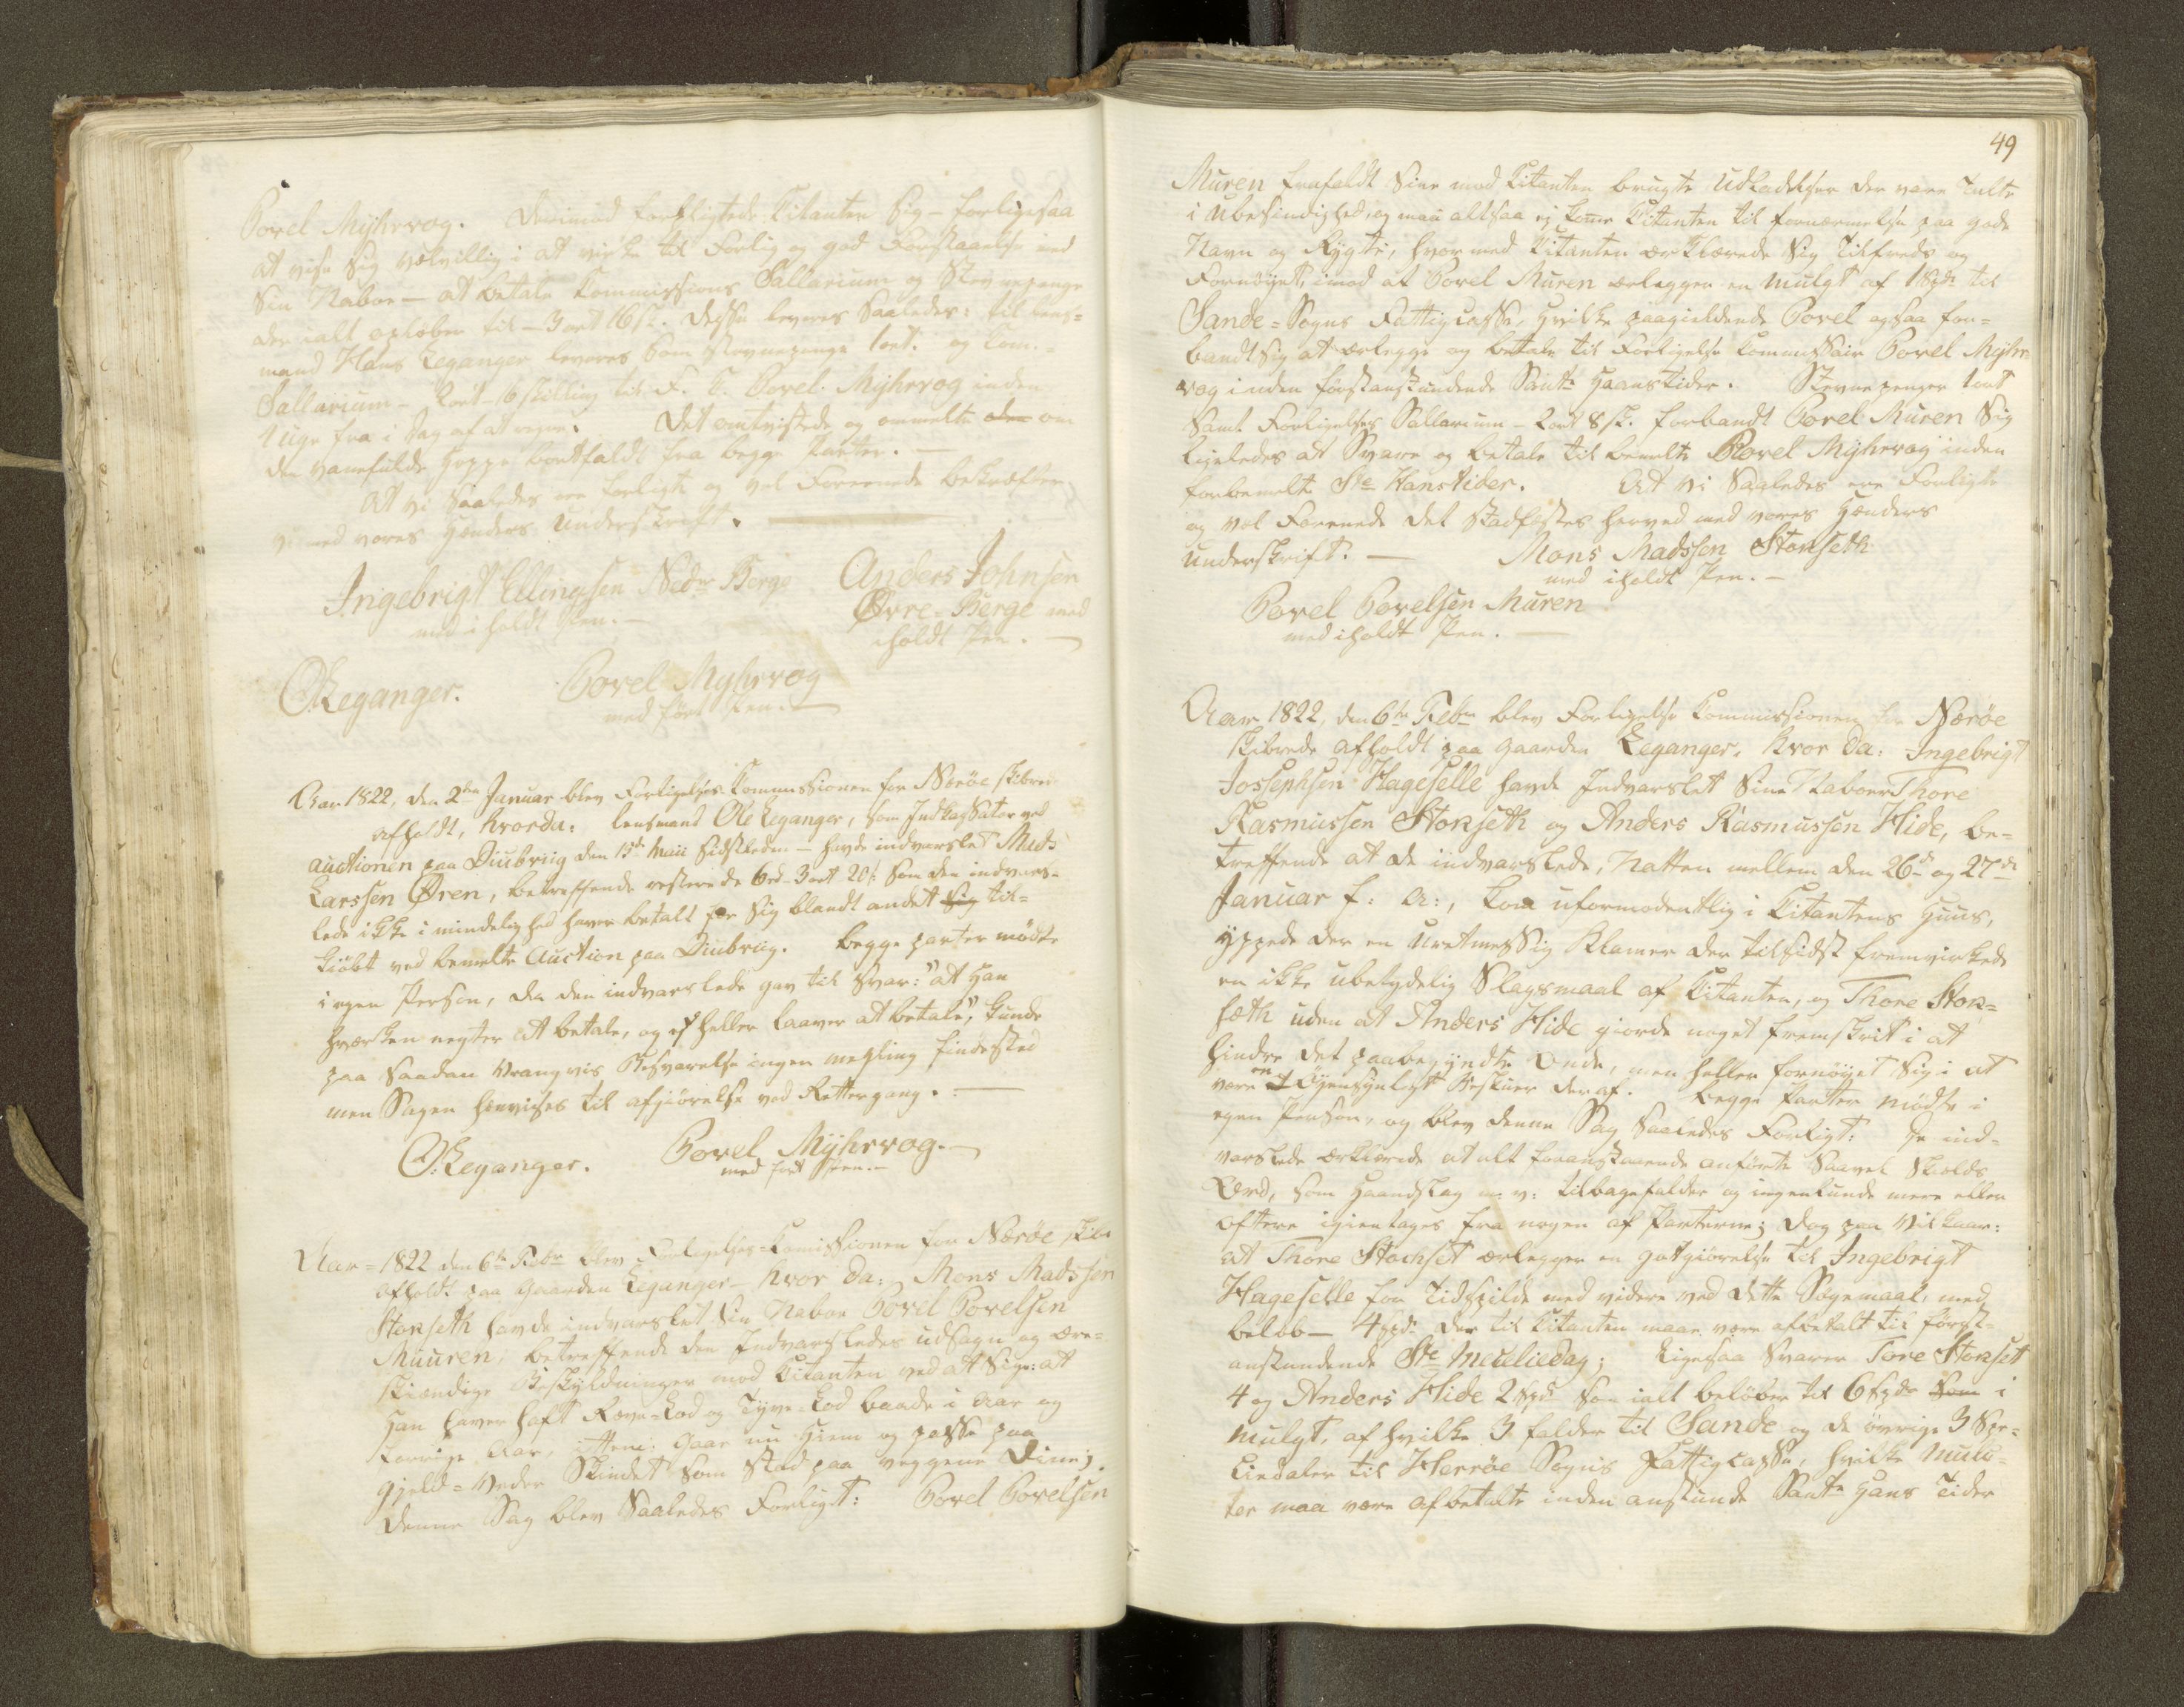 Povel Myhrvog. Derimod forpligtede Citanten sig - forligesaa
at vise sig velvillig i at virke til Forlig og god Forstaaelse med
sin Naboe - at betale Commissions Sallarium og Stevnepenge
der ialt opløber til - 3 ort 16 s. Disse leveres saaledes: til lens-
mand Hans Leganger leveres som stevnepenge 1 ort. og Com.-
Sallarium - 2 ort - 16 skilling til F. C. Povel Myhrvog inden
1 uge fra i Dag af at regne. Det omtvistede og ommelte om
den vanfulde Hoppe bortfaldt fra begge Parter. -
At vi saaledes ere forligte og vel Foreenede bekræfter
vi med vores Hænders Underskrift.
Ingebrigt Ellingsen Nedr Berge Anders Johnsen
med iholdt Pen. - Øvre-Berge med
iholdt Pen. -
O Leganger. Povel Myhrvog
med ført Pen. -
Aar 1822, den 2den Januar blev Forligelses Commissionen for Nærøe skibrede
afholdt, hvorda: lensmand Ole Leganger, som Indkassator ved
auctionen paa Diubviig den 15de Maii sidstleden - havde indvarslet Mads
Larssen Øren, betreffende resterende 6 sd 3 ort 20 s. som den indvars-
lede ikke i mindelighed haver betalt for sig blandt andet sig til-
kiøbt ved bemelte Auction paa Diubviig. Begge parter mødte
i egen Person, da den indvarslede gav til svar: "at han
hverken negter at betale, og ej heller laaver at betale," kunde
paa saadan Vrangvis Besvarelse ingen megling finde sted
men Sagen henvises til afgiørelse ved Rettergang. -
O. Leganger. Povel Myhrvog. -
med ført Pen. -
Aar - 1822 den 6te Febr blev Forligelses-Comissionen for Nærøe skibr
afholdt paa Gaarden Leganger - hvor da: Mons Madssen
Storseth havde indvarslet sin Naboe Povel Povelsen
Muuren, betreffende den Indvarsledes udsagn og ære-
skiændige Beskyldninger mod Citanten ved at sige: at
Han haver haft Ræve-kod og Tyve-kod baade i Aar og
Forrige Aar, ittem: Gaae nu Hiem og passe paa
Gjeld-Veder Skindet som stod paa veggene Dine;.
Denne Sag blev saaledes Forligt: Povel Povelsen
49
Muren frafaldt sine mod Citanten brugte Udladelser der vare talte
i Ubesindighed, og maa altsaa ej kome Citanten til fornærmelse paa gode
Navn og Rygte, hvormed Citanten erklærede sig tilfreds og
Fornøyet, imod at Povel Muren erlegger en Mulgt af 1 Spd til
Sande-Sogns Fattigcasse, hvilke paagieldende Povel ogsaa for-
bandt sig at erlegge og betale til Forligelse Commissair Povel Myhr-
vog inden førstanstundende Sante Haanstider. Stevnepenger 1 ort
samt Forligelses Sallarium - 2 ort 8 s. forbandt Povel Muren sig
ligeledes at svare og betale til bemelte Povel Myhrvog inden
forbemelte Ste Hanstider. At vi saaledes ere Forligte
og vel Foreenede det stadfæstes herved med vores Hænders
underskrift. - Mons Madssen Storseth
med iholdt Pen. -
Povel Povelsen Muren
med iholdt Pen. -
Aar 1822, den 6te Febr blev Forligelse Commissionen for Nærøe
skibrede afholdt paa Gaarden Leganger, hvor da: Ingebrigt
Jossephsen Hageselle havde Indvarslet sine Naboer Thore
Rasmussen Storseth og Anders Rasmussen Hide, be-
treffende at de indvarslede, Natten mellem den 26de og 27de
Januar f: A:, kom uformodentlig i Citantens Huus,
yppede der en Uretmessig Klamer der tilsidst fremvirkede
en ikke ubetydelig Slagsmaal af Citanten, og Thore Stor-
seth uden at Anders Hide giorde noget fremskrit i at
hindre det paabegyndte Onde, men heller fornøyet sig i at
være en Øyensynligst Beskuer deraf. Begge Parter mødte i
egen Person, og blev denne Sag saaledes Forligt: De ind-
varslede erklærede at alt foranstaaende anførte saavel skields
Ord, som Haandslag m: v: tilbagefalder og ingenlunde mere eller
oftere igientages fra nogen af Parterne; dog paa Vilkaar:
at Thore Storset erlegger en godtgiørelse til Ingebrigt
Hageselle for Tidspilde med videre ved dette Søgemaal, med
beløb - 4 spd. der til Citanten maae være afbetalt til først-
anstundende Ste Meuliedag; Ligesaa svarer Tore Storset
4 og Anders Hide 2 Spd som ialt beløber til 6 spdr som i
Mulgt, af hvilke 3 falder til Sande og de øvrige 3 Spe-
ciedaler til Herrøe Sogns Fattigcasse, hvilke Mulg-
ter maa være afbetalte inden anstunde Sante Hans Tider